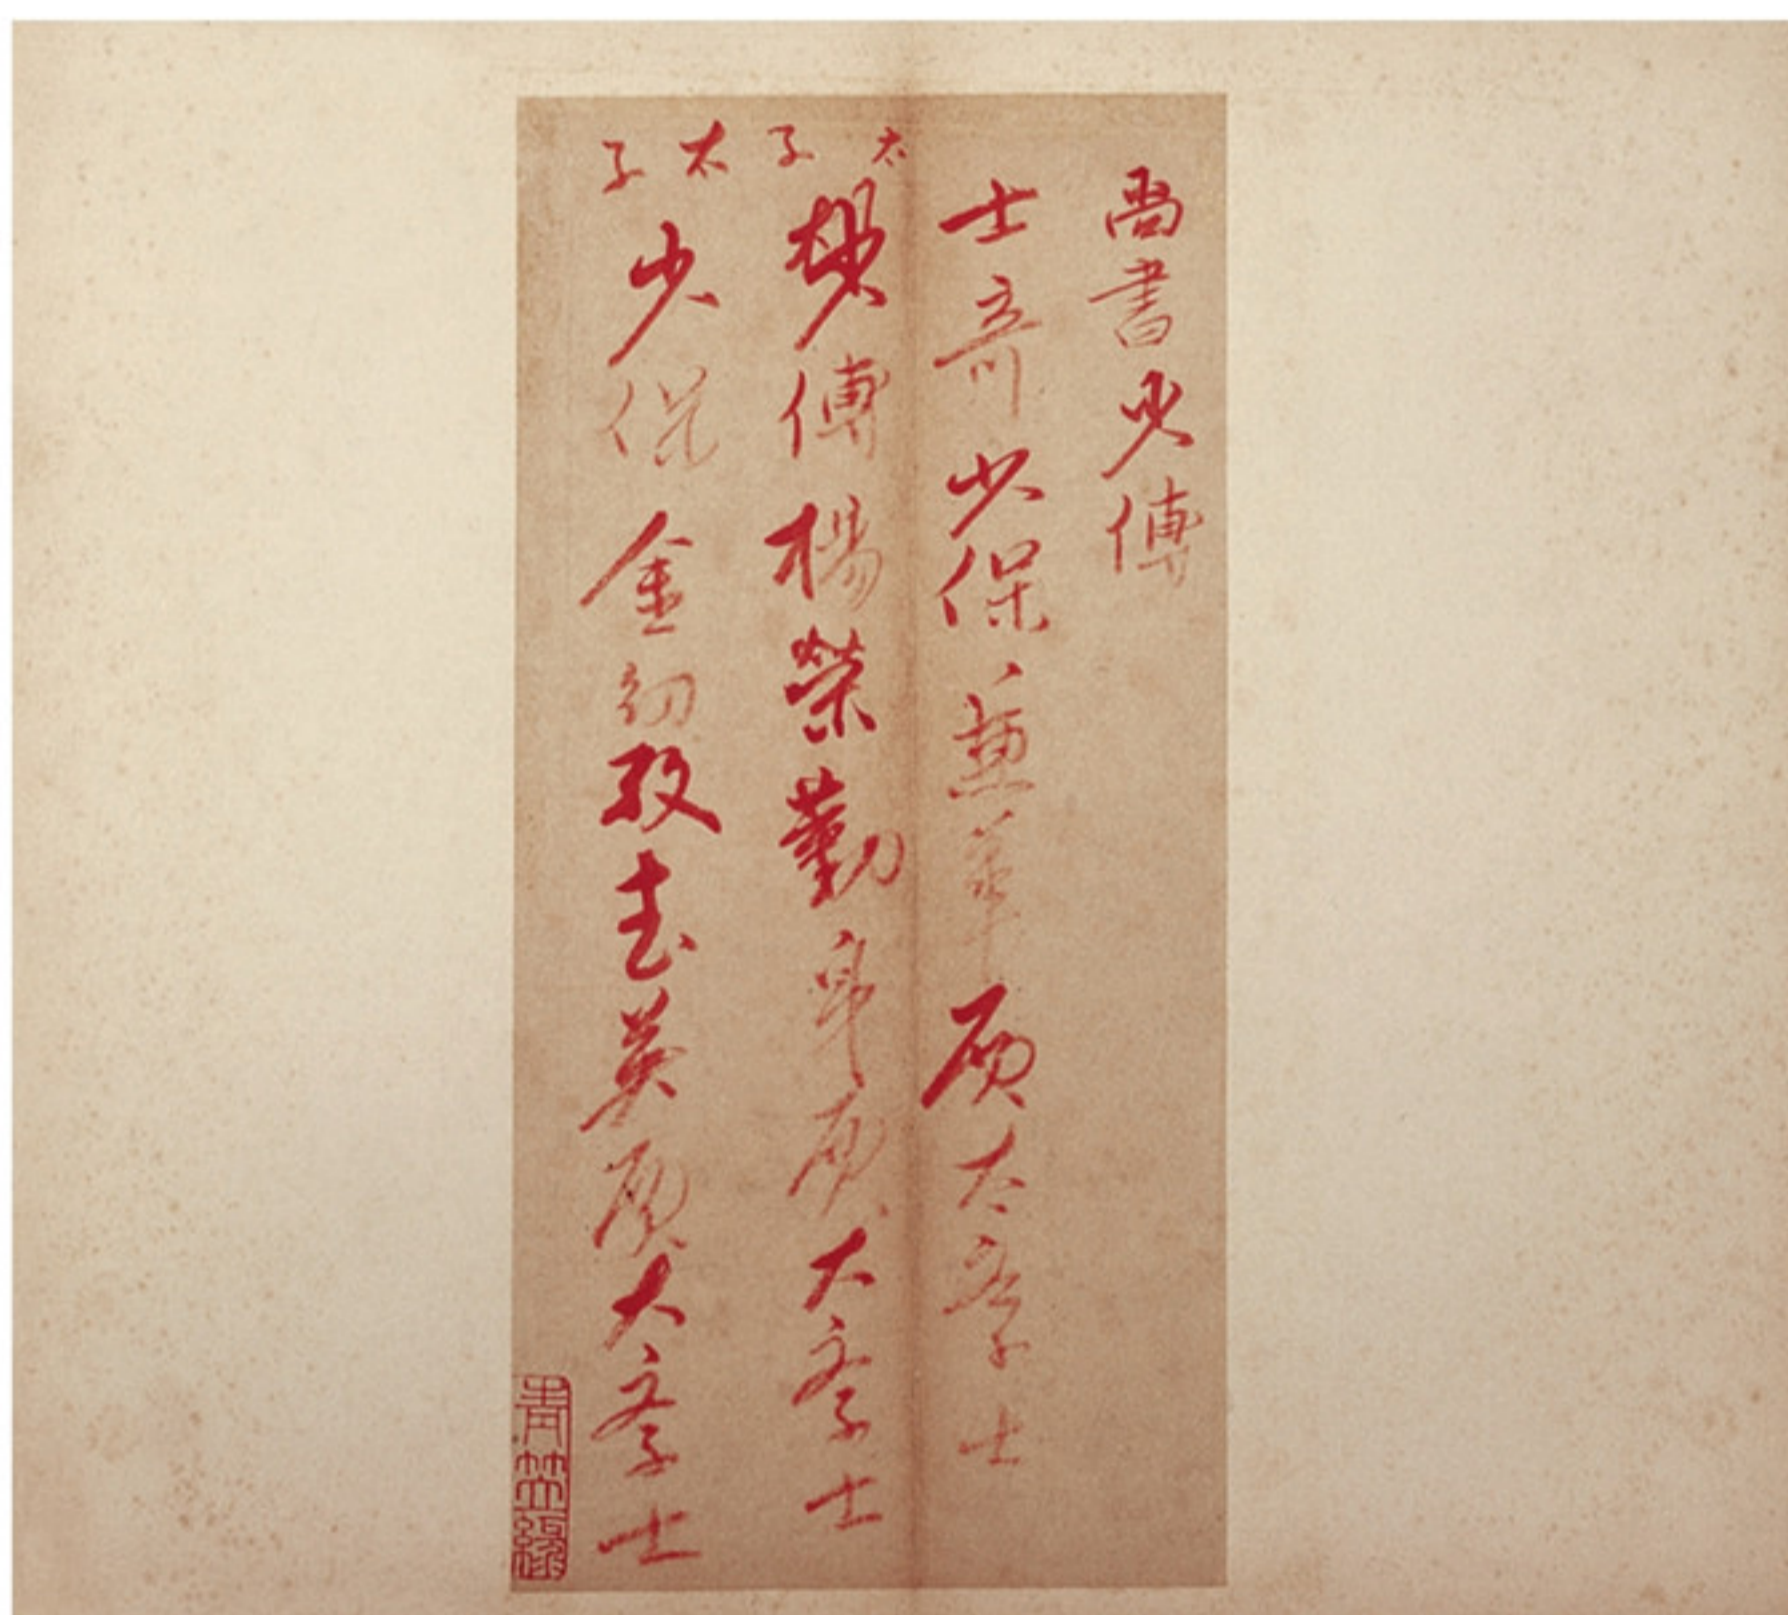 尚書少傅
士奇少保兼華殿大學士
太子傅楊榮勤身殿大學士
太子少保金幼孜武英殿大學士